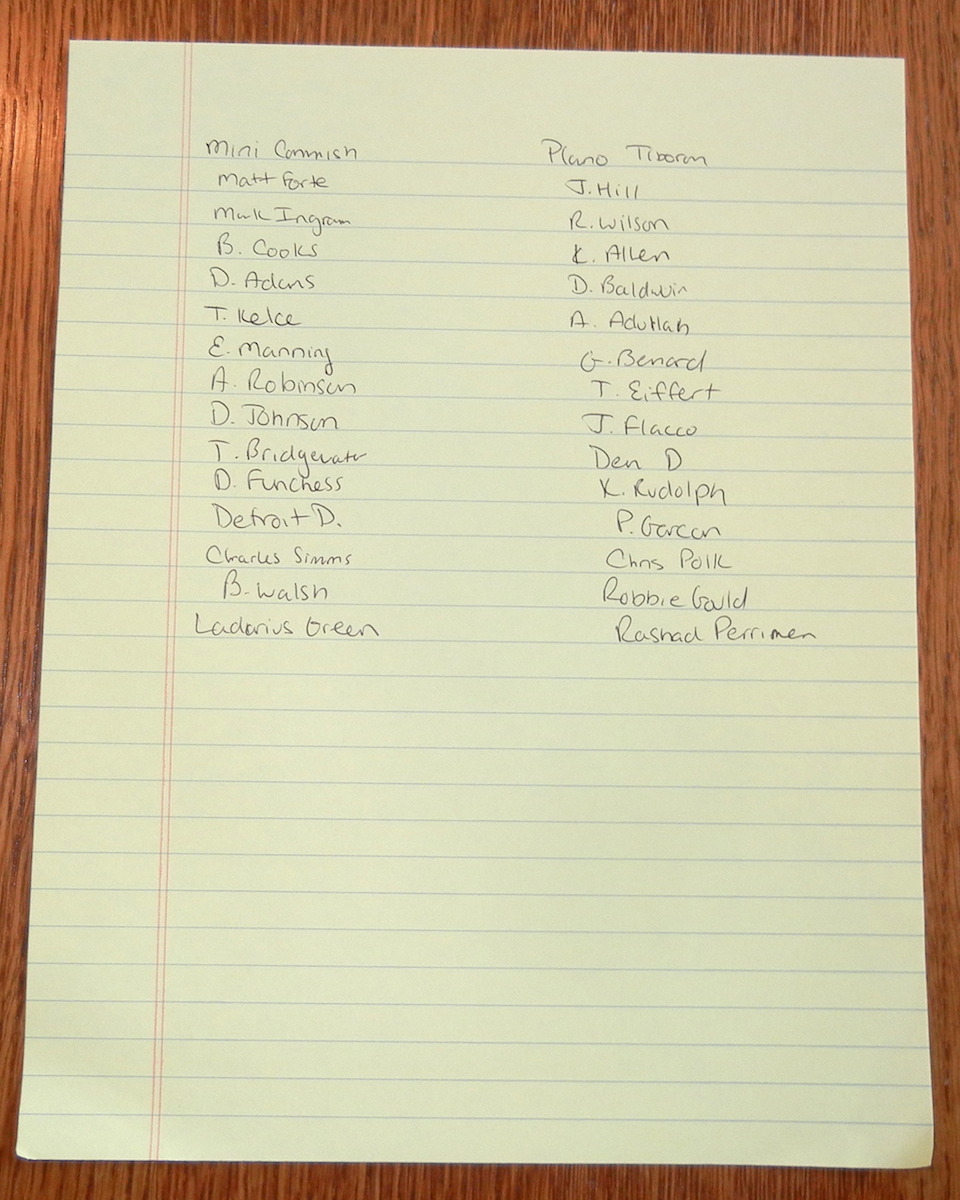 Mini Commish
Matt Forte
Mark Ingram
B. Cooks
D. Adams
T. Kelce
E. Manning
A. Robinson
D. Johnson
T. Bridgewater
D. Funchess
Detroit D.
Charles Simms
B. Walsh
Ladarius Green
Plano Tiboron
J. Hill
R. Wilson
K. Allen
D. Baldwin
A. Adullah
G. Benard
T. Eiffert
J. Flacco
Den D
K. Rudolph
P. Garcon
Chris Polk
Robbie Gould
Rashad Perrimen